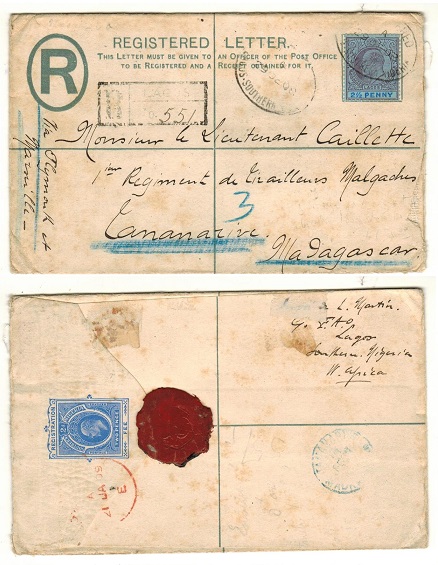 REGISTERED LETTER.
THIS LETTER MUST BE GIVEN TO AN OFFICER OF THE POST OFFICE
TO BE REGISTERED AND A RECEIPT OBTAINED FOR IT.
R
R
551
LAGOS-SOUTHERN
2½ PENNY
Monsieur le Lieutenant Caillette
1er Regiment de Tirailleurs Malgaches
3
Tananarive
Madagascar
Via Plymouth et
Marseille
L. Martin
Lagos
Southern Nigeria
W. Africa
REGISTRATION
TWO PENCE
FEE
JA 09
E